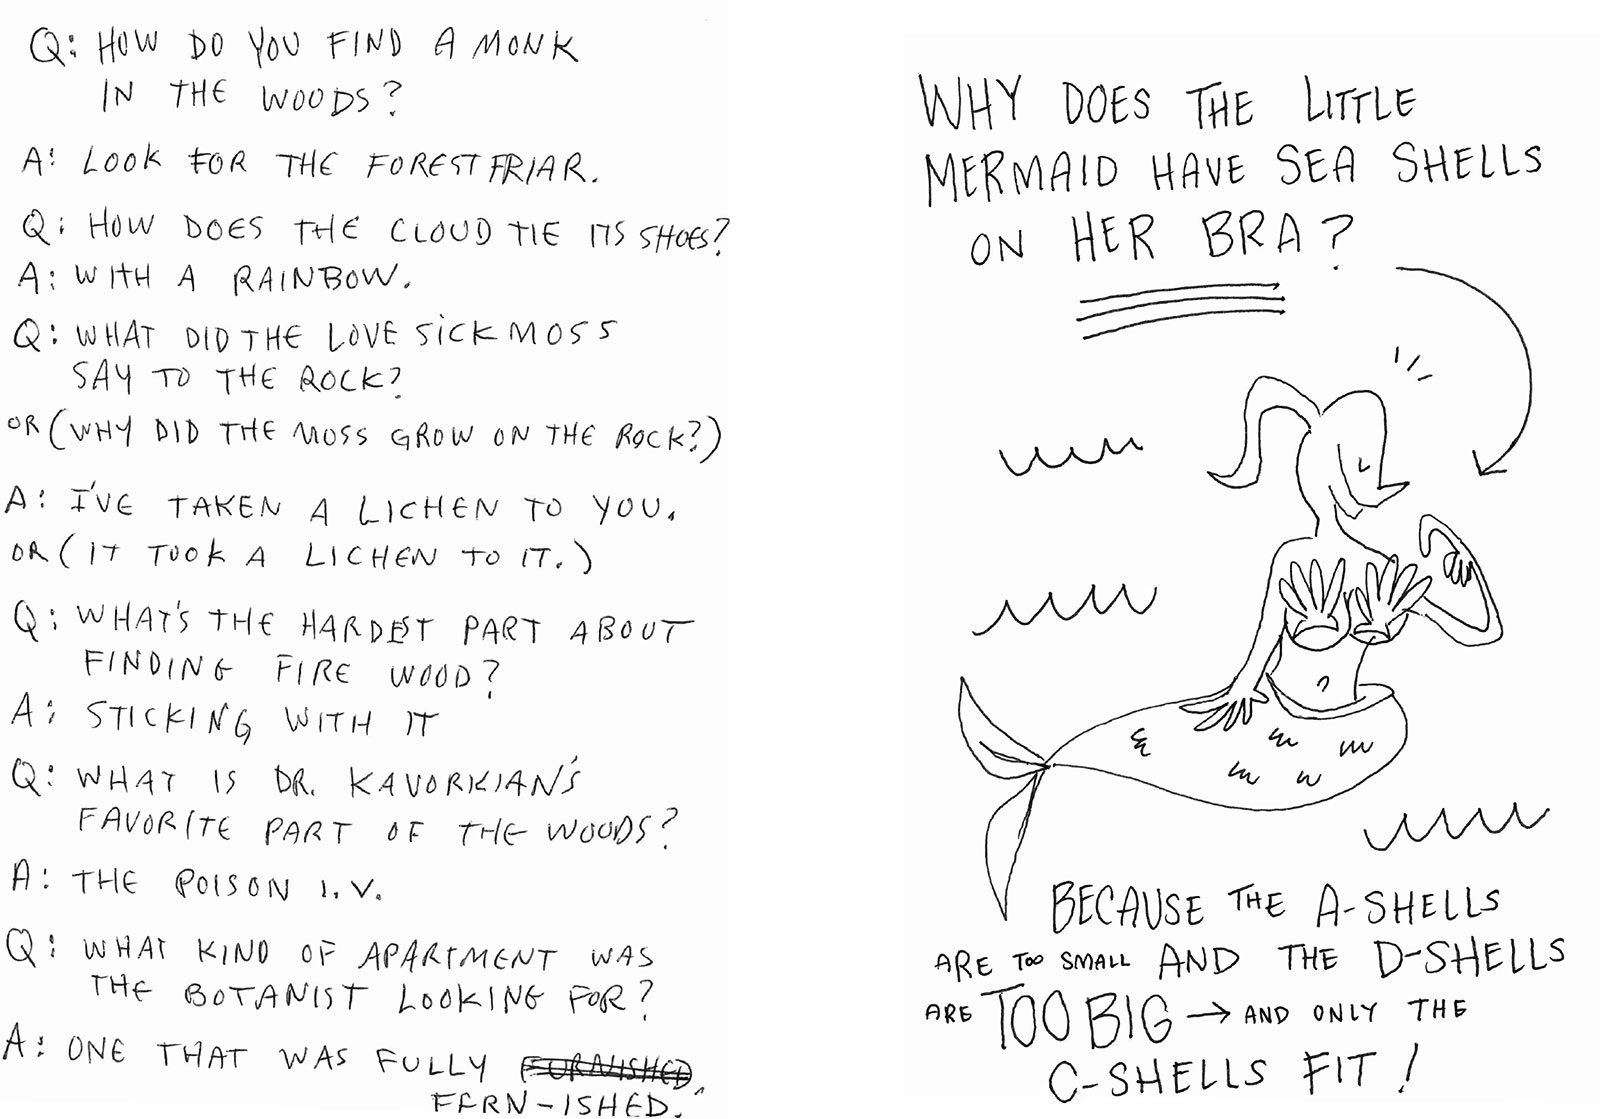 Q: HOW DO YOU FIND A MONK
IN THE WOODS?
A: LOOK FOR THE FOREST FRIAR.
Q: HOW DOES THE CLOUD TIE ITS SHOES?
A: WITH A RAINBOW.
Q: WHAT DID THE LOVE SICK MOSS
SAY TO THE ROCK?
OR (WHY DID THE MOSS GROW ON THE ROCK?)
A: I'VE TAKEN A LICHEN TO YOU.
OR (IT TOOK A LICHEN TO IT.)
Q: WHAT'S THE HARDEST PART ABOUT
FINDING FIRE WOOD?
A: STICKING WITH IT
Q: WHAT IS DR. KAVORKIAN'S
FAVORITE PART OF THE WOODS?
A: THE POISON I.V.
Q: WHAT KIND OF APARTMENT WAS
THE BOTANIST LOOKING FOR?
A: ONE THAT WAS FULLY FURNISHED.
FERN-ISHED.
WHY DOES THE LITTLE
MERMAID HAVE SEA SHELLS
ON HER BRA?
BECAUSE THE A-SHELLS
ARE TOO SMALL AND THE D-SHELLS
ARE TOO BIG → AND ONLY THE
C-SHELLS FIT!